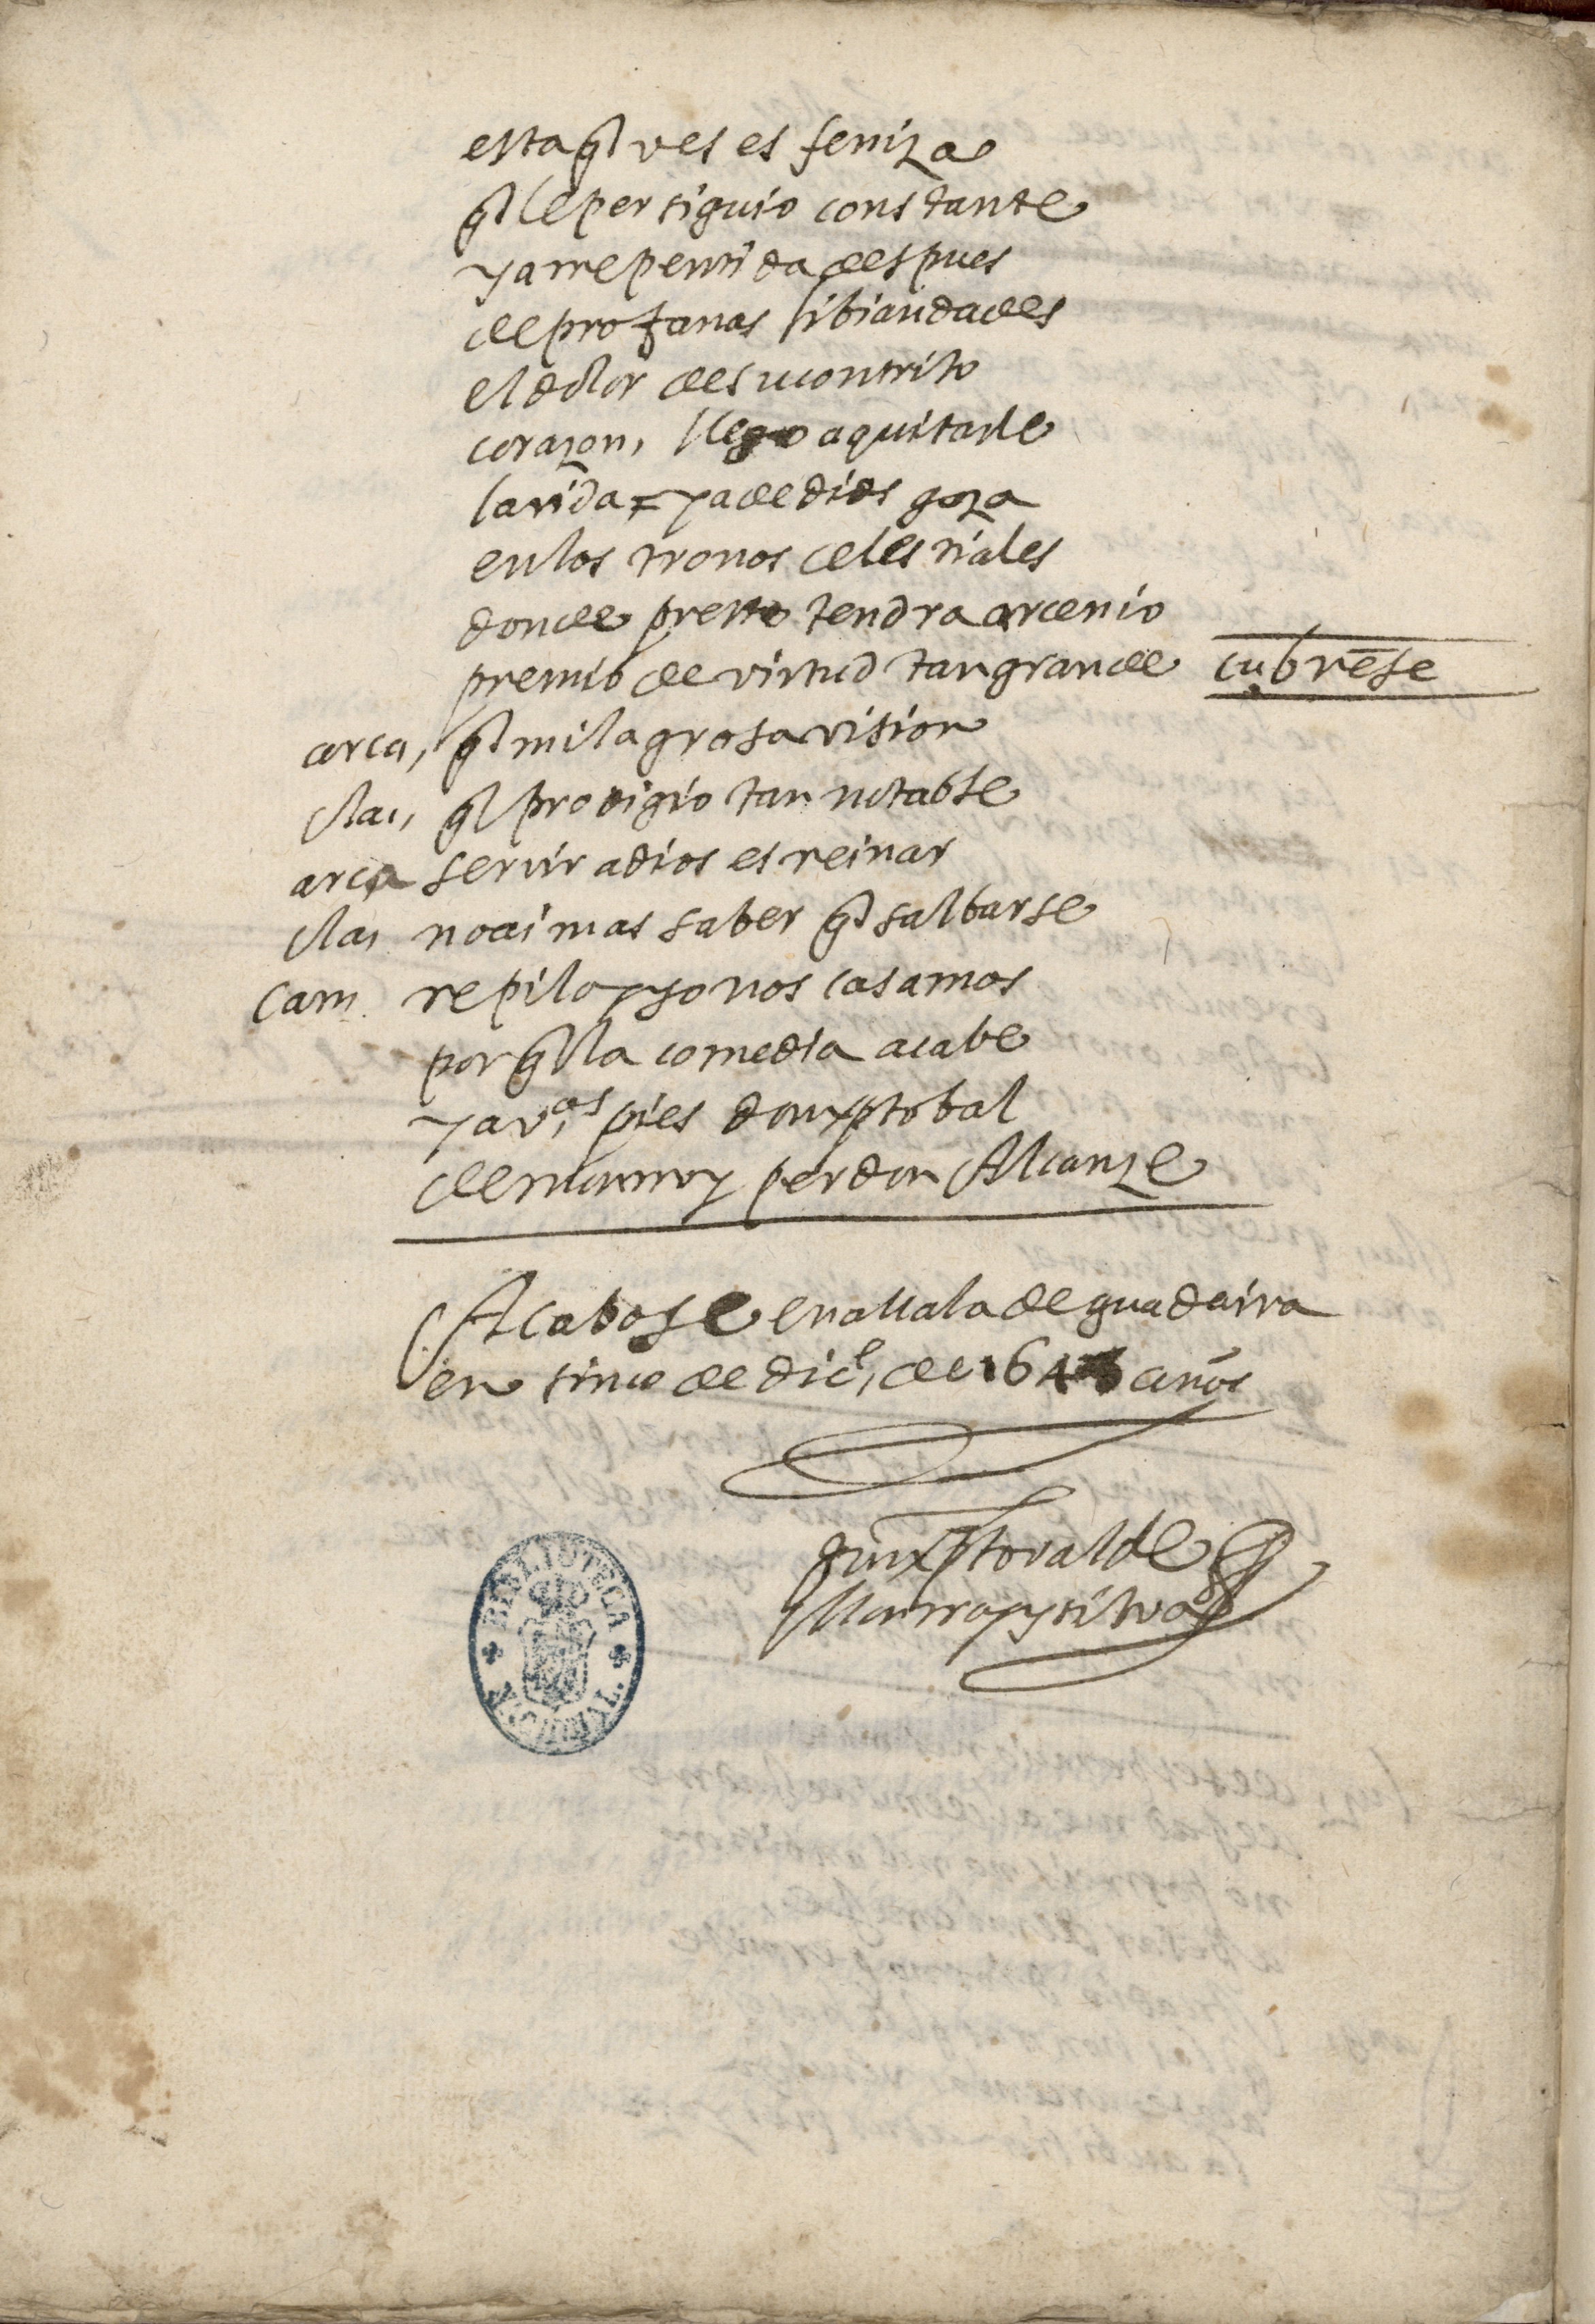 esta q̃ ves es feniza
q̃ le persiguio constante
y arrepentida despues
de profanas libiandades
el dolor de su contrito
corazon, llego a quitarle
la vida = ya de dios goza
en los tronos celestiales
donde presto tendra arcenio
premio de virtud tan grande cubrese
arca, q̃ milagrosa vision
clau, q̃ prodigio tan notable
arca servir a dios es reinar
clau no ai mas saber q̃ salbarse
Cam repila y yo nos casamos
por q̃ la comedia acabe
y a vros pies don xptobal
de monrroy perdon Alcanze
Acabose en alcala de guadaira
en sinco de dice, de 164 años
Don xptoval de
Monrroy y silva
BIBLIOTECA NACIONAL